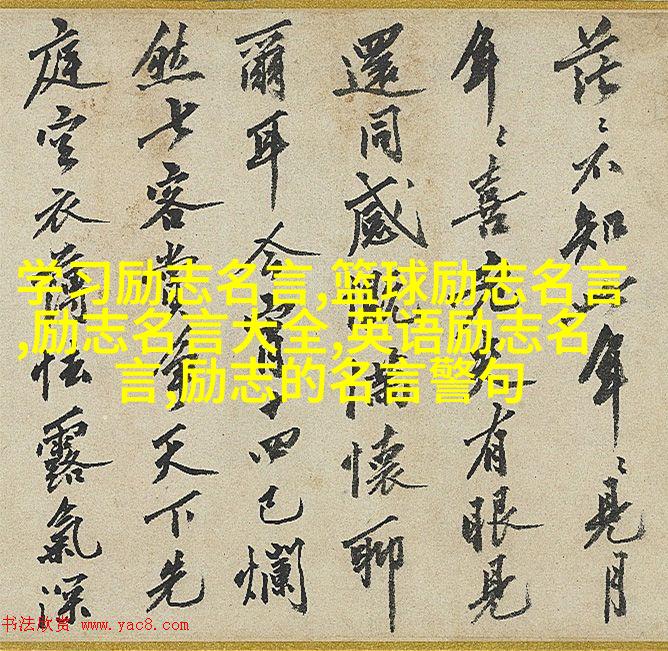 茫〻不知年〻見月
年〻喜有眼見
還同感慨情懷聊
爾耳今宵四已爛
然客嘗天下先
庭空衣薄怯露氣深
学习励志名言,篮球励志名言
,励志名言大全,英语励志名
言,励志的名言警句
书法欣赏 www.yac8.com